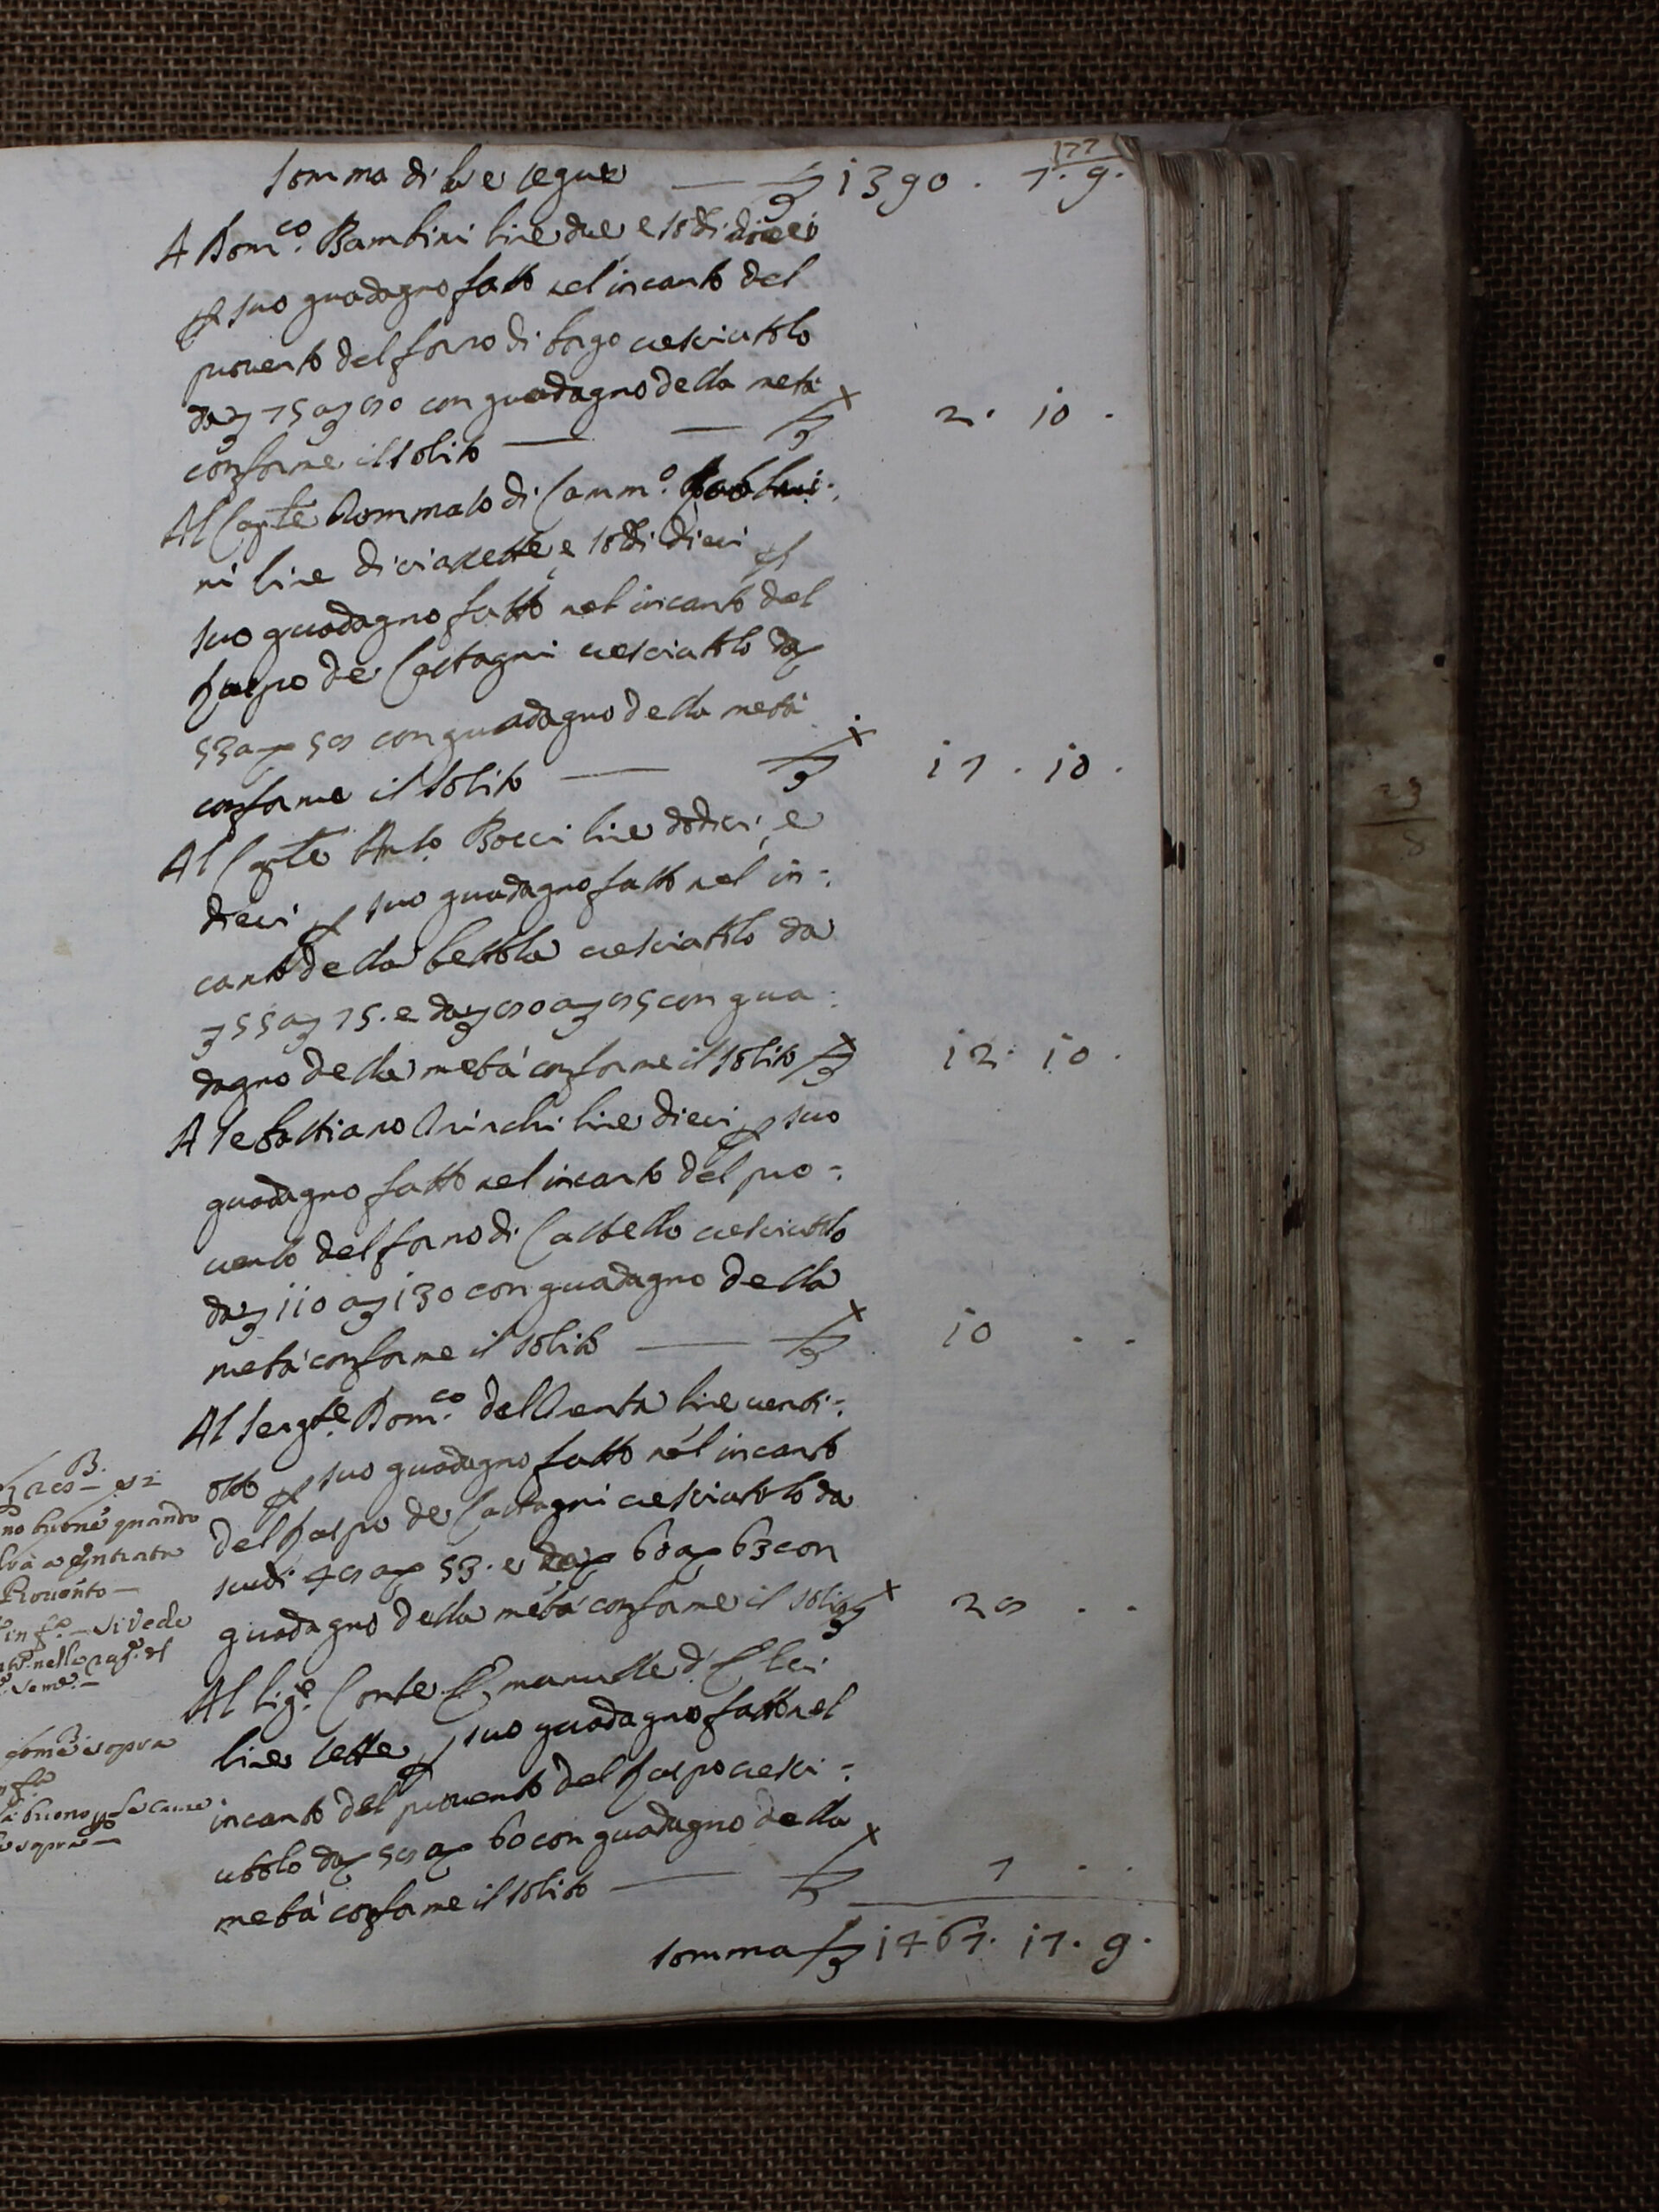 177
somma di la e segue £ 1390 . 7 . 9 .
A Dom.co Bambini lire due e soldi dieci
p suo guadagno fatto nel incanto del
provento del forno di borgo cresciutolo
da £ 75 a £ 80 con guadagno della metà
conforme il solito £ 2 . 10 .
Al Capte Tommaso di Camm.o
ni lire diciasette e soldi dieci p
suo guadagno fatto nel incanto del
de Castagni cresciuttolo da
53 a 58 con guadagno della metà
conforme il solito £ 17 . 10 .
Al Capte Ant.o Bocci lire dodici, e
dieci p suo guadagno fatto nel in=
canto della bettola cresciuttolo da
£ 55 a £ 75. e da £ 80 a £ 85 con gua=
dagno della metà conforme il solito £ 12 . 10 .
A Sebastiano lire dieci p suo
guadagno fatto nel incanto del pro=
vento del forno di Castello cresciuttolo
da £ 110 a £ 130 con guadagno della
metà conforme il solito £ 10 . .
Al Serg.te Dom.co del Tenta lire venti=
otto p suo guadagno fatto nel incanto
del de Castagni cresciuttolo da
scudi 48 a 53. e da 60 a 63 con
guadagno della metà conforme il solito £ 28 . .
Al Sig.e Conte Emanuelle d'Elci
lire sette p suo guadagno fatto nel
incanto del provento del cresci=
uttolo da 58 a 60 con guadagno della
metà conforme il solito £ 7 . .
somma £ 1467 . 17 . 9 .
B.
no buone quando
Entrata
Provento
in f.o - si vede
nella
come sopra
buono p le cause
sopra